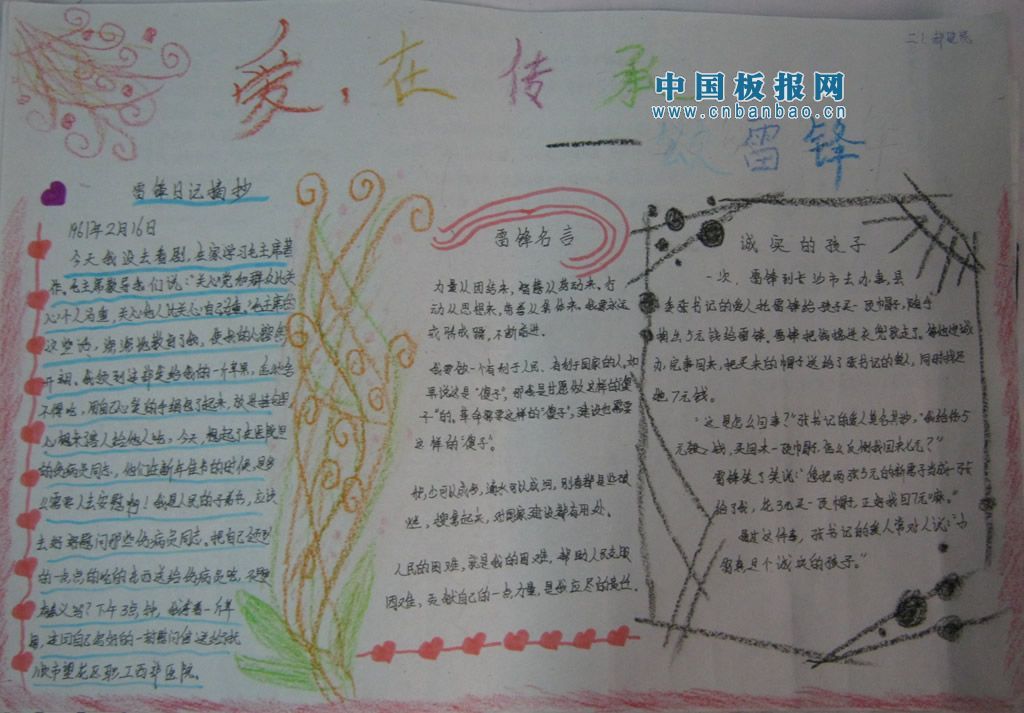 爱，在传承
中国板报网
www.cnbanbao.cn
——致雷锋
雷锋日记摘抄
1961年2月16日
今天我没去看剧，在家学习毛主席著
作。毛主席教导我们说："关心党和群众比关
心个人为重，关心他人比关心自己为重。"毛主席的
这些话，
不得吃，用自己心爱的手绢包了起来，
今天，想起了在医院里
的伤病员同志，他们在新年佳节的时候，
需要人去安慰啊！我是人民的子弟兵，应该
去好好慰问那些伤病员同志。把自己
的一点点的吃的东西送给伤病员吃，
有意义吗？下午3点钟，我拿着一斤苹
果，连同自己写好的一封慰问信送给了抚
顺市望花区职工西部医院。
雷锋名言
力量从团结来，智慧从劳动来。行
动从思想来，荣誉从集体来。我要永远
戒骄戒躁，不断前进。
我要做一个有利于人民、有利于国家的人。如
果说这是"傻子"，那我是甘愿做这样的"傻
子"的。革命需要这样的"傻子"，建设也需要
这样的"傻子"。
积少可以成多，滴水可以成河，别看都是些破
烂，攒起来，对国家建设都有用处。
人民的困难，就是我的困难，帮助人民克服
困难，贡献自己的一点力量，是我应尽的责任。
诚实的孩子
一次，雷锋到长沙市去办事，县
委张书记的爱人托雷锋给孩子买一顶帽子，随手
掏出5元钱给雷锋。雷锋把钱揣进衣兜就走了。
办完事回来，把买来的帽子送给了张书记的爱人，同时找还
她7元钱。
"这是怎么回事？"张书记的爱人莫名其妙，"我给你5
元钱，买回来一顶帽子，怎么反倒找回来7元？"
雷锋笑了笑说："您把两张5元的新票子当成一张
给了我，花3元买一顶帽子，正好找回7元嘛。"
通过这件事，张书记的爱人常对人说："小
雷真是个诚实的孩子。"